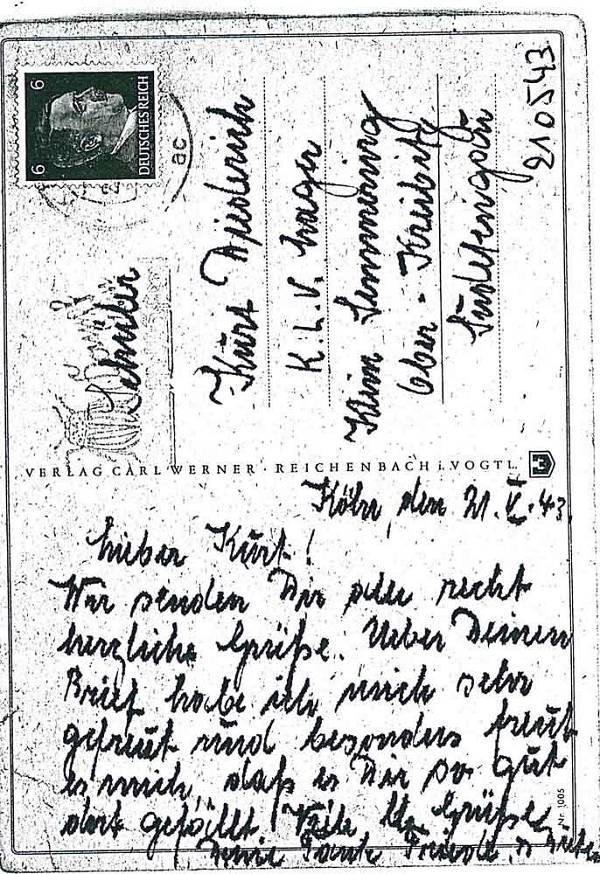 6
6
DEUTSCHES REICH
ac
Schüler
Kurt Diederich
K.L.V. Lager
Klein Semmering
Ober-Kreibitz
Sudetengau
210543
VERLAG CARL WERNER · REICHENBACH i. VOGTL.
Köln, den 21.V.43.
Lieber Kurt!
Wir senden Dir alle recht
herzliche Grüße. Ueber Deinen
Brief habe ich mich sehr
gefreut und besonders freut
es mich, daß es Dir so gut
dort gefällt. Viele Grüße
Deine Tante Friede
Nr. 1005